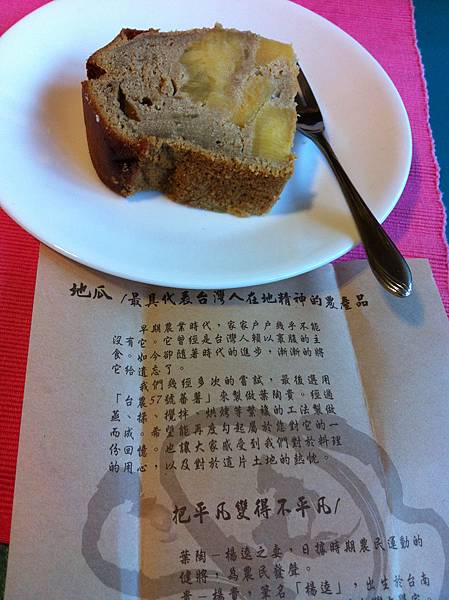 地瓜 /最具代表台灣人在地精神的農產品
早期農業時代，家家戶戶幾乎不能
沒有它。它曾經是台灣人賴以裹腹的主
食。如今卻隨著時代的進步，漸漸的將
它給遺忘了。
我們幾經多次的嘗試，最後選用
「台農57號蕃薯」來製做葉陶貴。經過
蒸、揉、攪拌、烘烤等繁複的工法製做
而成。希望能再度勾起屬於您對它的一
份回憶。也讓大家感受到我們對於料理
的用心，以及對於這片土地的熱忱。
把平凡變得不平凡/
葉陶－楊逵之妻，日據時期農民運動的
健將，為農民發聲。
貴－楊貴，筆名「楊逵」，出生於台南